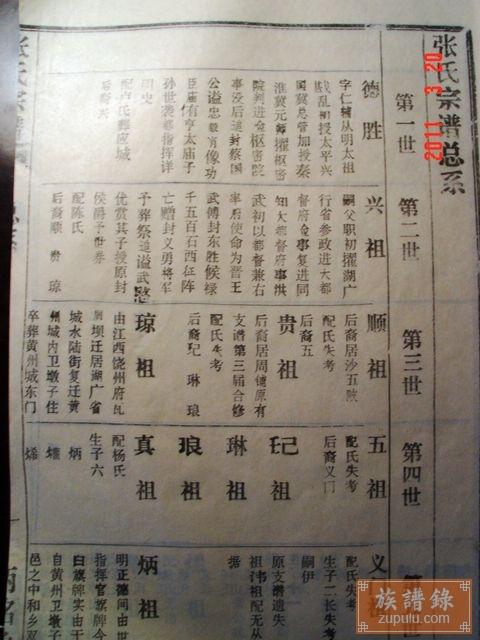 张氏宗谱总系
2011 3 20
第一世
德胜
字仁辅从明太祖
戡乱初授太平兴
国冀总管加授秦
淮冀元帅擢枢密
院判进佥枢密院
事没后追封蔡国
公谥忠毅肖像功
臣庙有亨太庙子
孙世袭都指挥详
明史
配卢氏葬应城
后裔兴
第二世
兴祖
嗣父职初擢湖广
行省参政进大都
督府佥事复进同
知大都督府事洪
武初以都督兼右
率府使命为晋王
武傅封东胜候禄
千五百石西征阵
亡赠封义勇将军
予葬祭追谥武愍
优赏其子授原封
侯爵予世券
配陈氏
后裔顺 贵 琼
第三世
顺祖
后裔居沙五墩
配氏失考
后裔五
贵祖
后裔居周铺原有
支谱第三届合修
配氏失考
后裔玘 琳 琅
琼祖
由江西饶州府瓦
坝迁居湖广省
城水陆街复迁黄
州城内卫墩子住
卒葬黄州城东门
第四世
五祖
配氏失考
后裔义门
玘祖
琳祖
琅祖
真祖
配杨氏
生子六
炳
烯
义祖
配氏失考
生子二长失考
嗣伊
原支谱遗失
据
炳祖
明正德间由世
指挥官旗牌令
白旗牌实由于
自黄州卫墩子
邑之中和乡双
族譜錄
zupulu.com